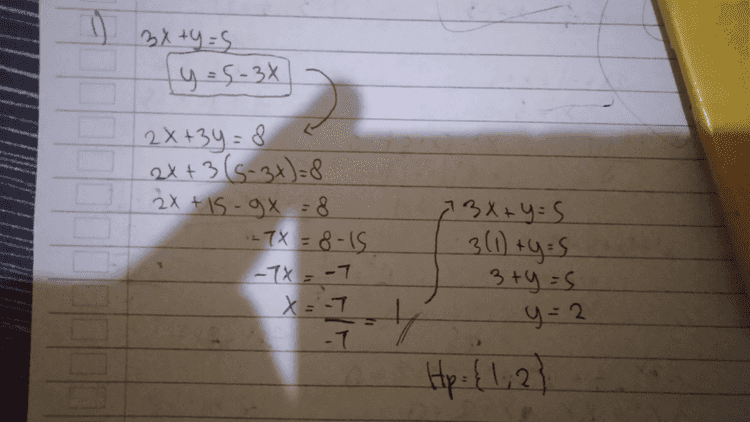 1) 3x+y=5
y=5-3x
2x+3y=8
2x+3(5-3x)=8
2x+15-9x=8
-7x=8-15
-7x=-7
x=-7/-7=1
3x+y=5
3(1)+y=5
3+y=5
y=2
Hp={1,2}